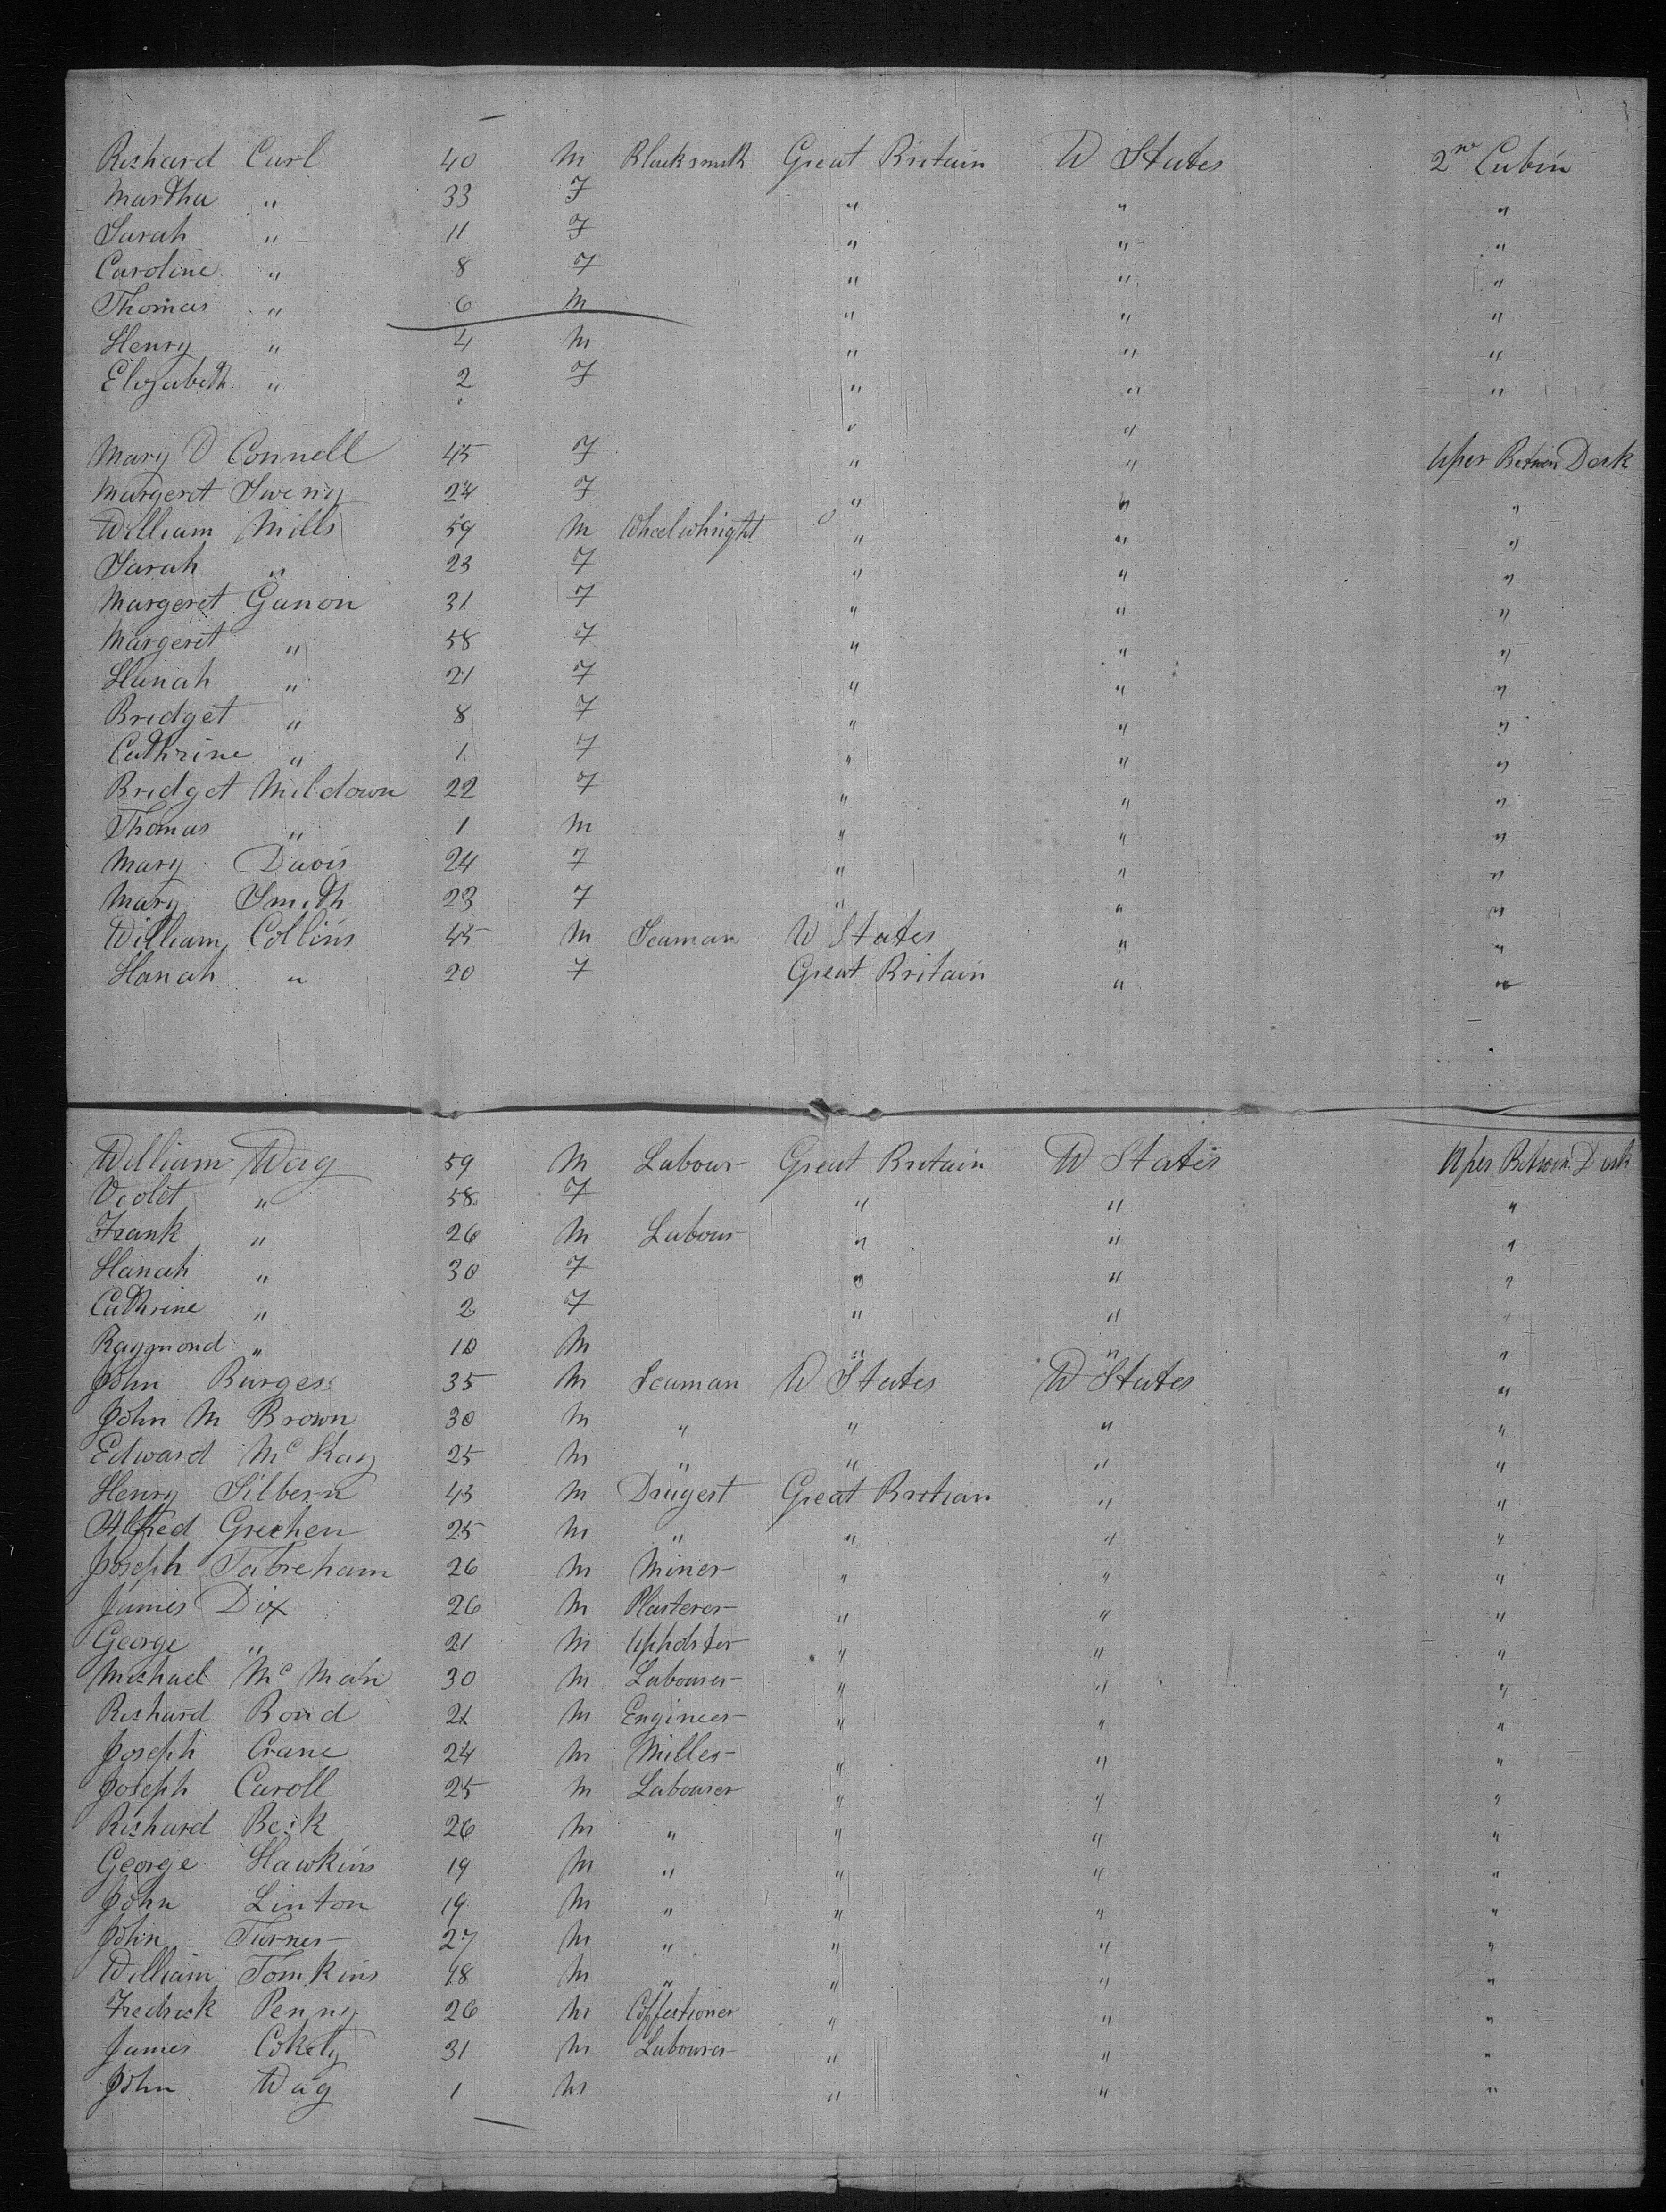 Richard Curl 40 M Blacksmith Great Britain U States 2nd Cabin
Martha " 33 F " " "
Sarah " 11 F " " "
Caroline " 8 F " " "
Thomas " 6 M " " "
Henry " 4 M " " "
Elizabeth " 2 F " " "
" "
Mary O Connell 45 F " " Uper Between Deck
Margeret Sweny 24 F " " "
William Mills 59 M Wheelwhright " " "
Sarah " 23 F " " "
Margeret Ganon 31 F " " "
Margeret " 58 F " " "
Hanah " 21 F " " "
Bridget " 8 F " " "
Cathrine " 1 F " " "
Bridget Mildown 22 F " " "
Thomas " 1 M " " "
Mary Davis 24 F " " "
Mary Smith 23 F " " "
William Collins 45 M Seaman U States " "
Hanah " 20 F Great Britain " "
William Wag 59 M Labour Great Britain U States Uper Between Deck
Violet " 58 F " " "
Frank " 26 M Labour " " "
Hanah " 30 F " " "
Cathrine " 2 F " " "
Raymond " 10 M " " "
John Burgess 35 M Seaman U States U States "
John M Brown 30 M " " " "
Edward Mc Kay 25 M " " " "
Henry Silbern 43 M Drugest Great Britian " "
Alfred Grechen 25 M " " " "
Joseph Tabreham 26 M Miner " " "
James Dix 26 M Plasterer " " "
George " 21 M Upholster " " "
Michael Mc Mahn 30 M Labourer " " "
Richard Bond 21 M Engineer " " "
Joseph Crane 24 M Miller " " "
Joseph Caroll 25 M Labourer " " "
Richard Beck 26 M " " " "
George Hawkins 19 M " " " "
John Linton 19 M " " " "
John Turner 27 M " " " "
William Tomkins 18 M " " " "
Fredrick Penny 26 M " " "
James Cokely 31 M Labourer " " "
John Wag 1 M " " "